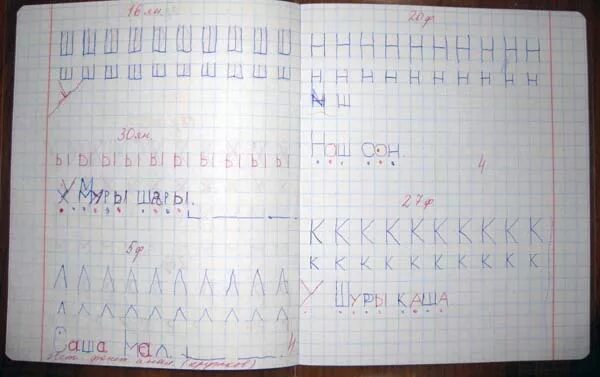 16 ян.
Ш Ш Ш Ш Ш Ш Ш Ш Ш Ш
Ш Ш Ш Ш Ш Ш Ш Ш Ш Ш
30 ян.
Ы Ы Ы Ы Ы Ы Ы Ы Ы Ы
У Муры шары.
5 ф
Л Л Л Л Л Л Л Л Л
Л Л Л Л Л Л Л Л Л
Саша мал.
20 ф
Н Н Н Н Н Н Н Н Н Н Н
Н Н Н Н Н Н Н Н Н Н Н
Н Ш
Наш сон.
4
27 ф
К К К К К К К К К К
К К К К К К К К К К
У Шуры каша